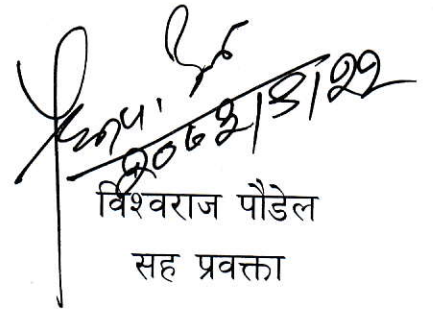 २०७३।३।२२
विश्वराज पौडेल
सह प्रवक्ता